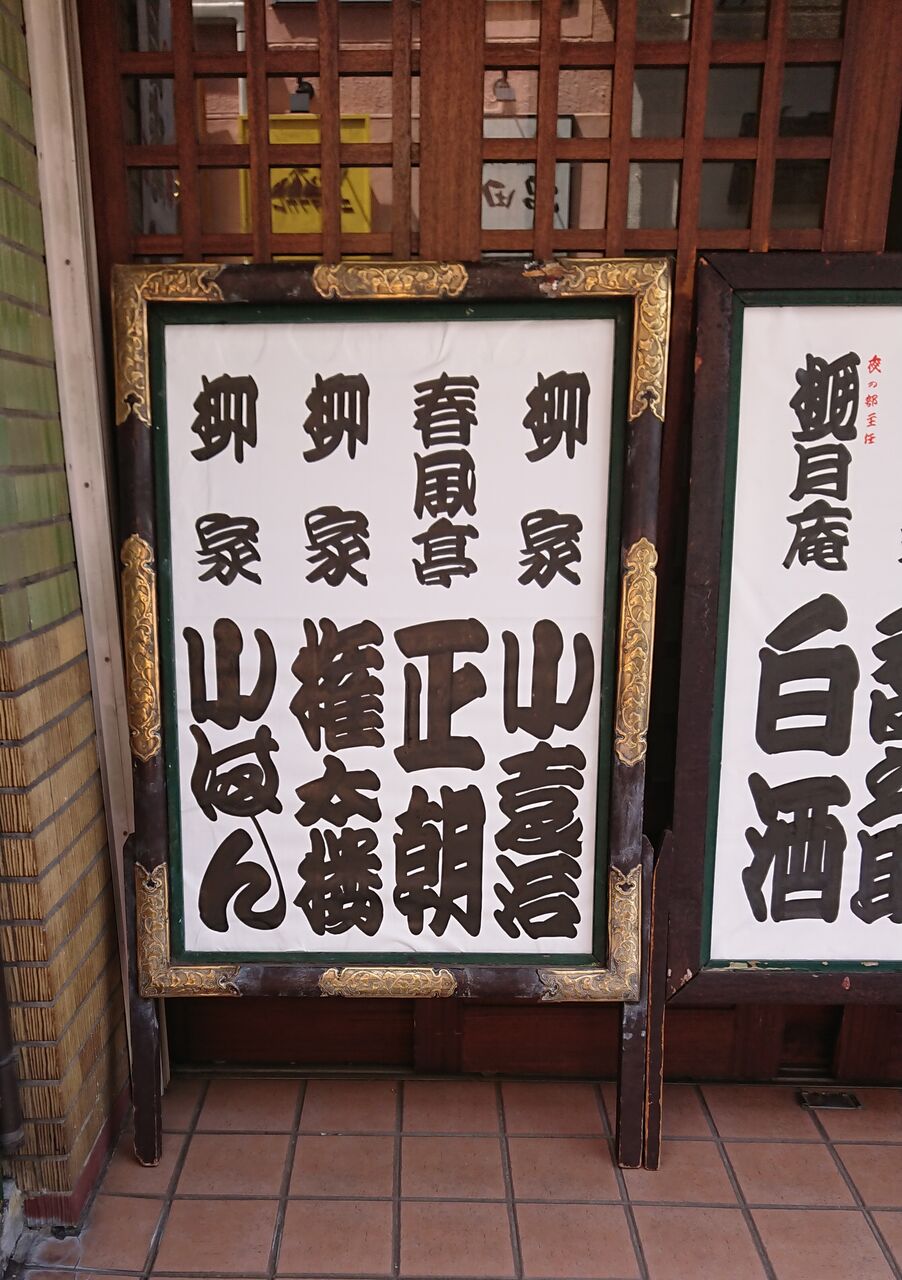 夜の部主任
桃月庵 白酒
柳家 小袁治
春風亭 正朝
柳家 権太楼
柳家 小はん